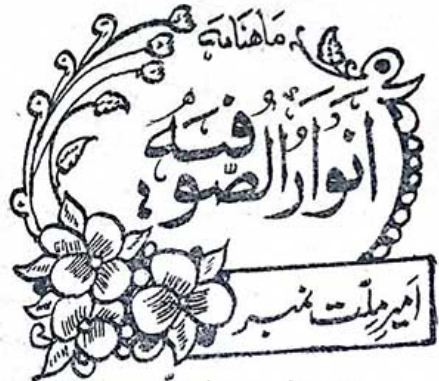 ماہنامہ
انوار الصوفیہ
امیر ملّت نمبر